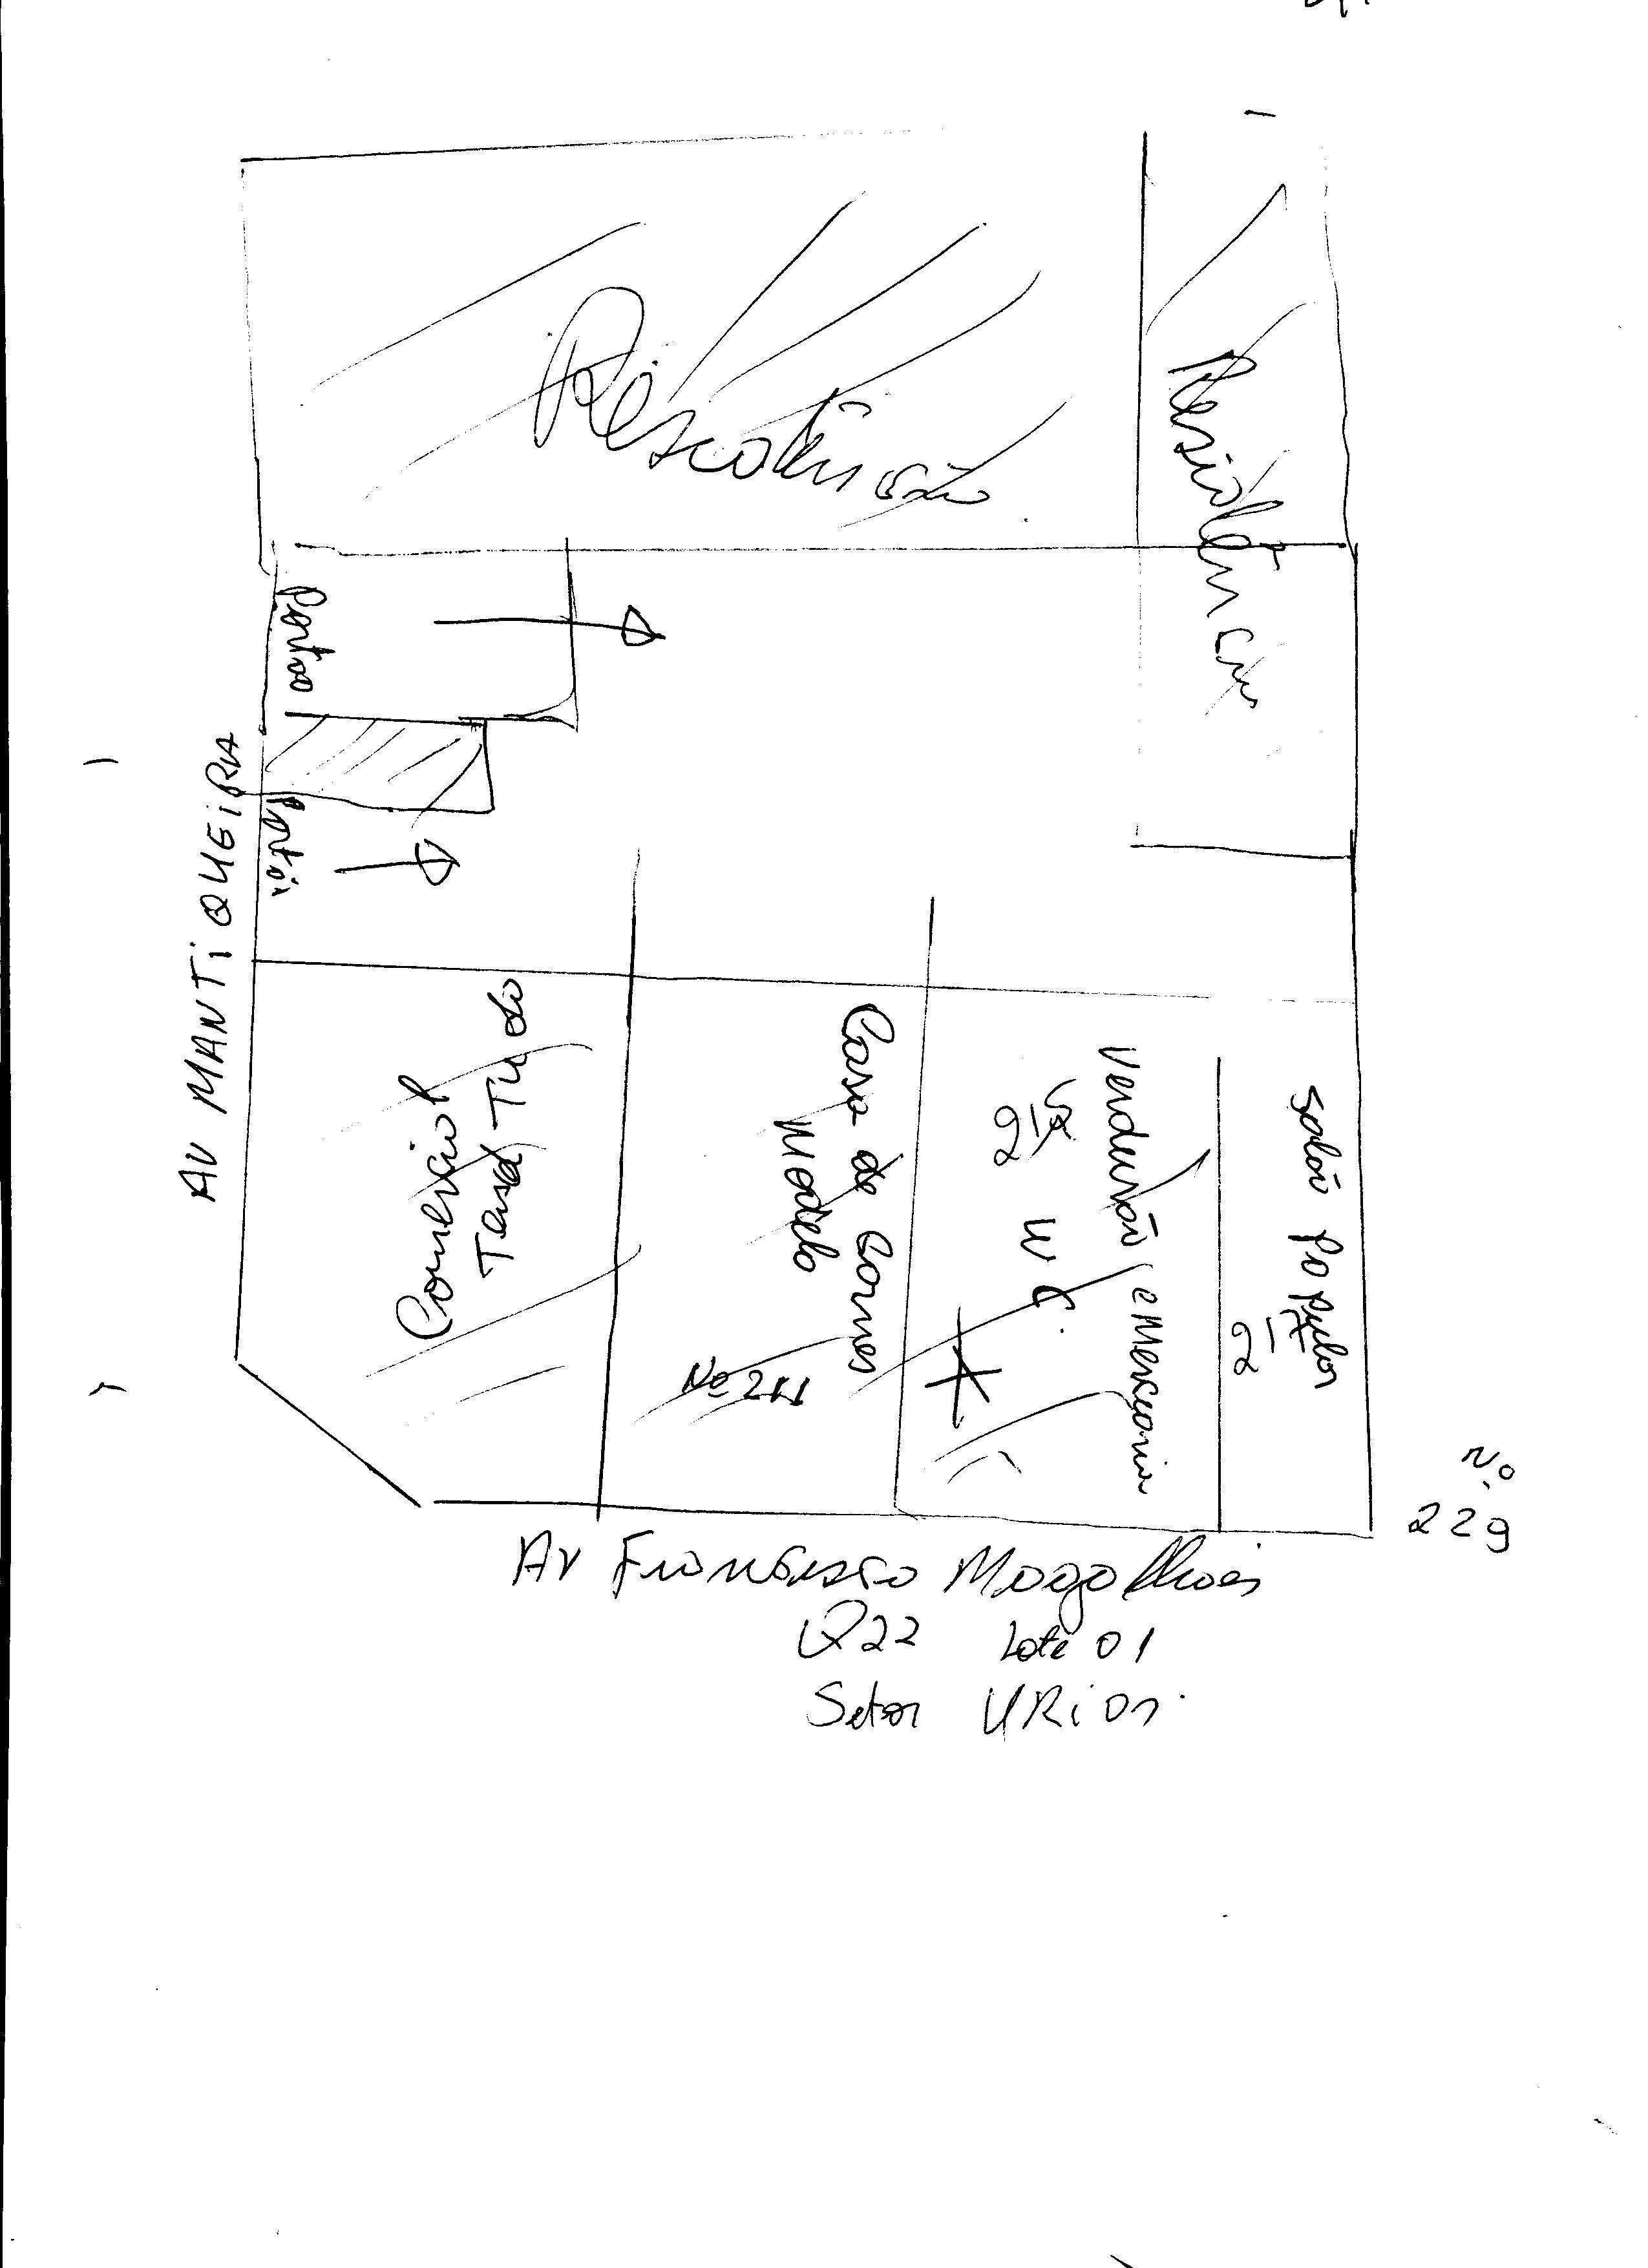 Residência
Residência
Portão
Portão
AV MANTiQUEiRA
Comercial
Tend Tudo
Casa de Carnes
Modelo
Verdurão e Mercearia
W C.
Salão Popular
217
Nº
229
AV Francisco Magalhães
Q22 Lote 01
Setor URiAS